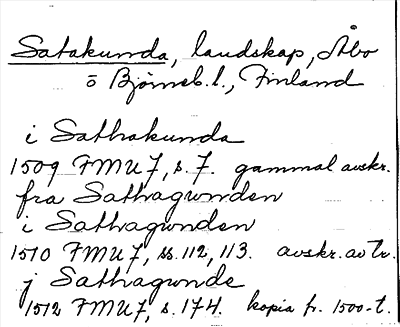 Satakunda, landskap, Åbo
o Björneb. l., Finland
i Sathrakunda
1509 FMU 7, s. 7. gammal avskr.
fra Sathagwnden
i Sathagwnden
1510 FMU 7, ss. 112, 113. avskr. av Tr.
j Sathagwnde
1512 FMU 7, s. 174. kopia fr. 1500-t.